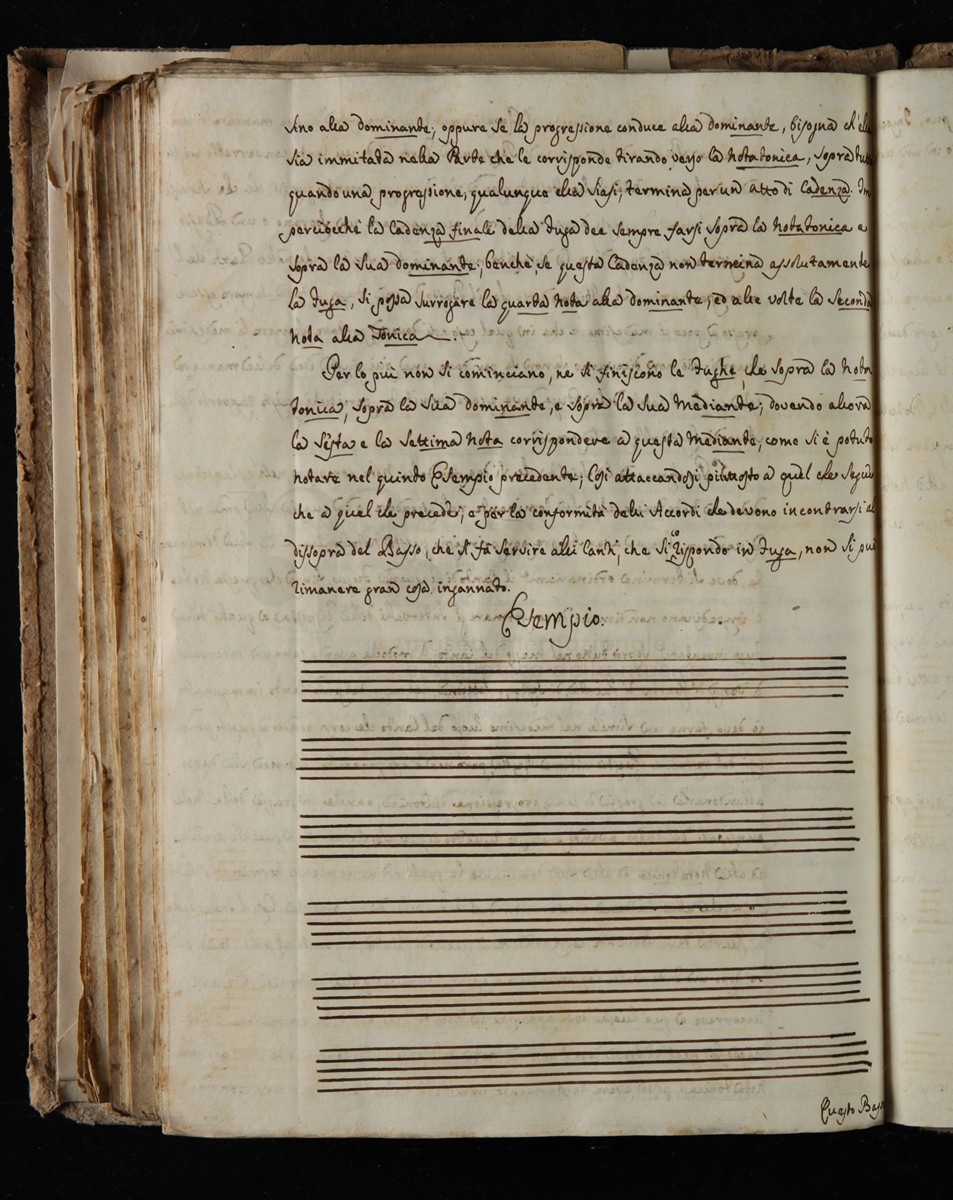 sino alla dominante; oppure se la progressione conduce alla dominante, bisogna ch'ella
sia immitata nella Parte che le corrisponde tirando verso la notatonica, sopra tutto
quando una progressione, qualunque ella siasi, termina per un atto di Cadenza. Im
perciocchè la Cadenza finale della fuga dee sempre farsi sopra la notatonica e
sopra la sua dominante; benchè se questa Cadenza non termina assolutamente
la fuga, si possa surrogare la quarta nota alla dominante; ed alle volte la seconda
nota alla Tonica.
Per lo più non si cominciano, ne si finiscono le fughe, che sopra la nota
tonica, sopra la sua dominante, e sopra la sua Mediante; dovendo allora
la sesta e la settima nota corrispondere a questa Mediante, come si è potuto
notare nel quinto Esempio precedente; Così attaccandosi piuttosto a quel che segue
che a quel che precede, e per la conformità delli Accordi che devono incontrarsi al
dissopra del Basso, che si fà servire alli Canti, che si rispondono in fuga, non si può
rimanere gran cosa ingannato.
Esempio.
Questo Bas